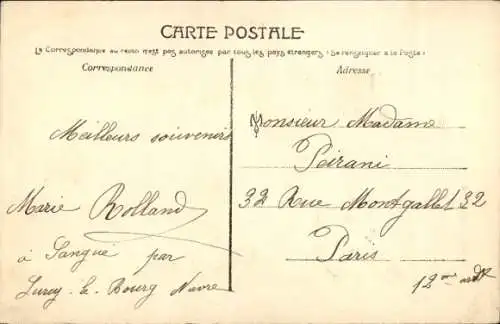 CARTE POSTALE
La Correspondance au recto n'est pas autorisée par tous les pays étrangers (Se renseigner à la Poste)
Correspondance
Adresse
Meilleurs souvenirs
Marie Rolland
à Sangué par
Lurcy-le-Bourg Nièvre
Monsieur Madame
Peirani
32 Rue Montgallet 32
Paris
12me ardt